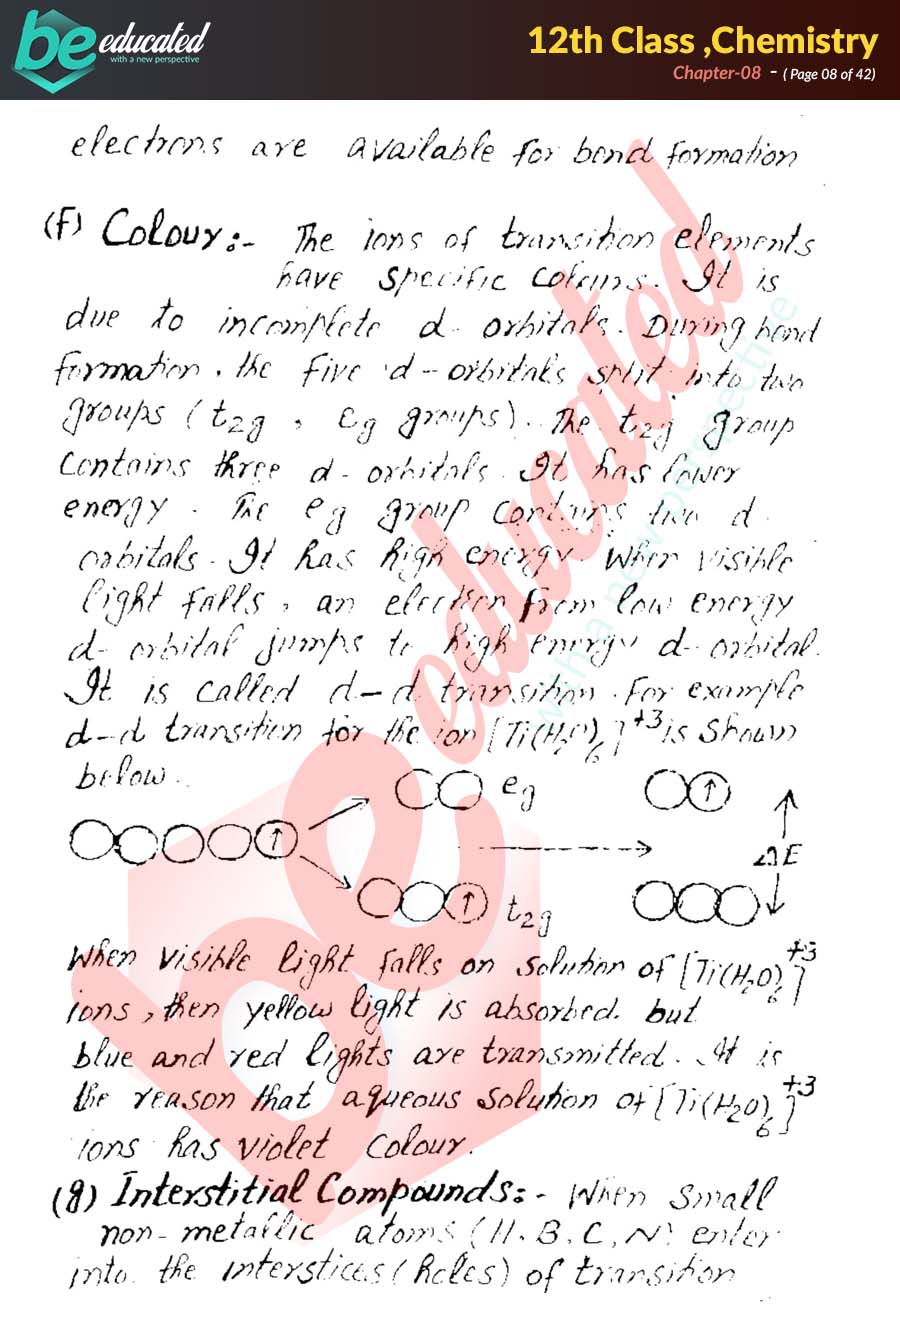 be educated
with a new perspective
12th Class ,Chemistry
Chapter-08 - ( Page 08 of 42)
electrons are available for bond formation
(f) Colour:- The ions of transition elements
have specific colours. It is
due to incomplete d-orbitals. During bond
formation, the five d-orbitals split into two
groups (t2g, eg groups). The t2g group
contains three d-orbitals. It has lower
energy. The eg group contains two d
orbitals. It has high energy. When visible
light falls, an electron from low energy
d-orbital jumps to high energy d-orbital.
It is called d-d transition. For example
d-d transition for the ion [Ti(H2O)6]+3 is shown
below.
eg
↑
↑
ΔE
↑ t2g
When visible light falls on solution of [Ti(H2O)6]+3
ions, then yellow light is absorbed. but
blue and red lights are transmitted. It is
the reason that aqueous solution of [Ti(H2O)6]+3
ions has violet colour.
(g) Interstitial Compounds:- When small
non-metallic atoms (H, B, C, N) enter
into the interstices (holes) of transition
be educated
with a new perspective